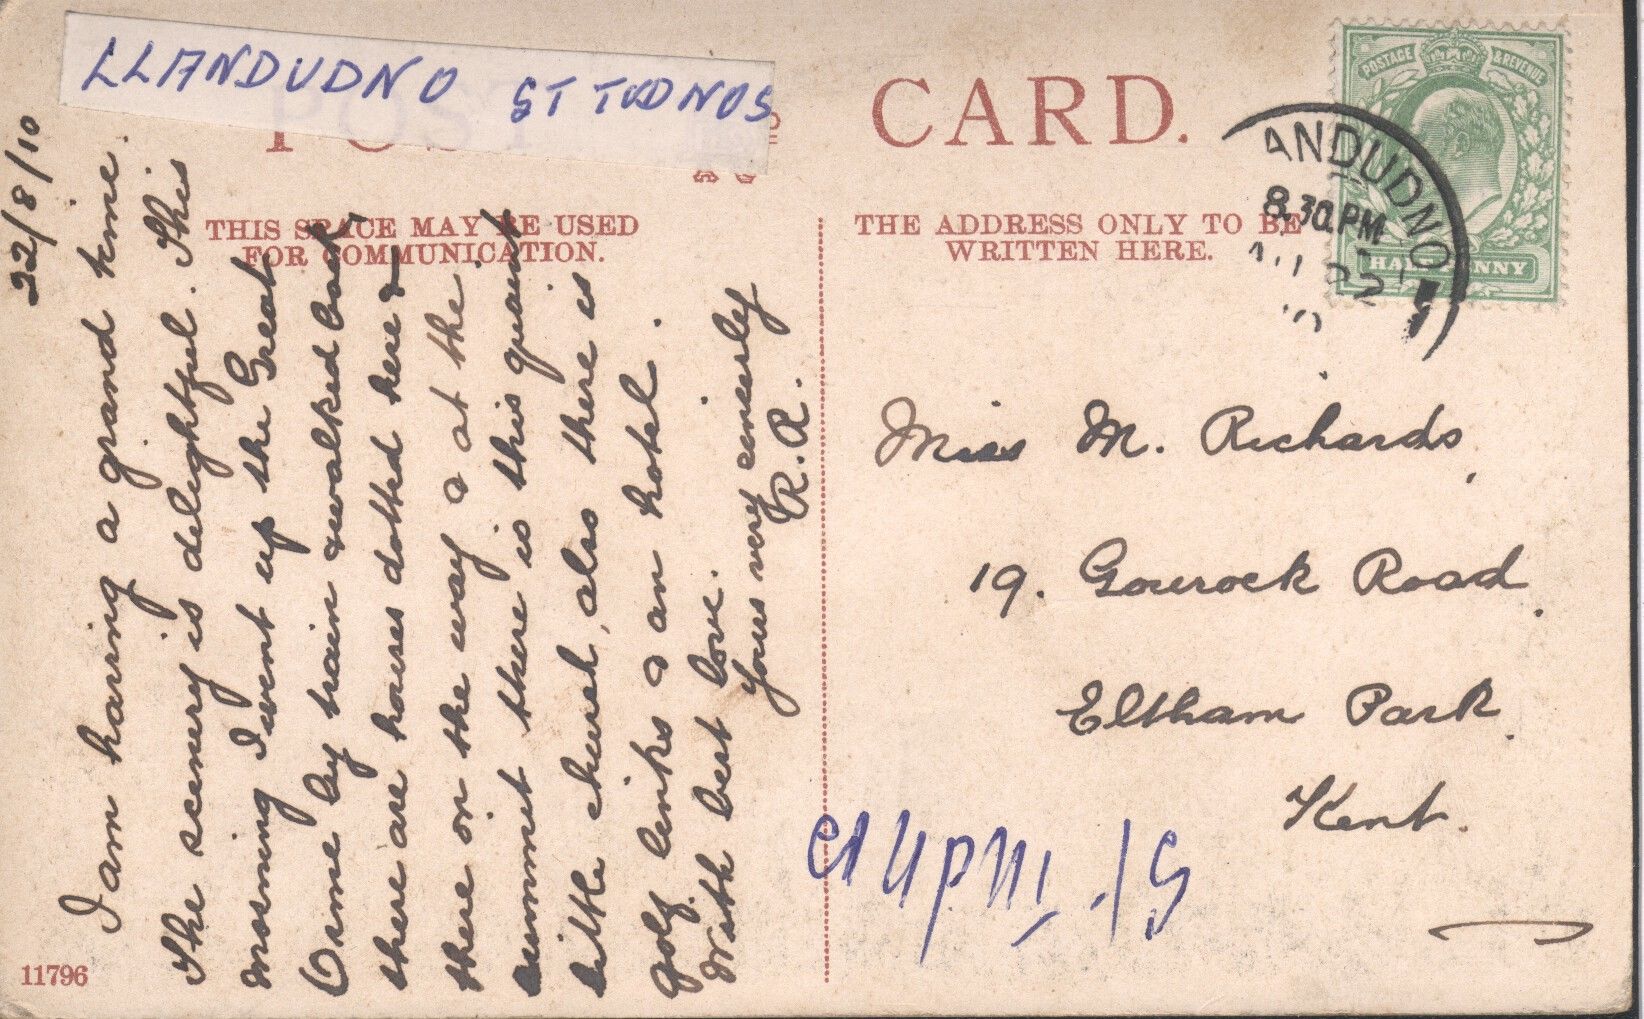 LLANDUDNO ST TUDNOS
POST CARD.
THIS SPACE MAY BE USED
FOR COMMUNICATION.
THE ADDRESS ONLY TO BE
WRITTEN HERE.
POSTAGE & REVENUE
HALFPENNY
ANDUDNO
8.30PM
22
10
22/8/10
I am having a grand time.
The scenery is delightful. This
morning I went up the Great
Orme by train & walked back
there are houses dotted here &
there on the way & at the
summit there is this quaint
little church, also there is
golf links & an hotel.
With best love.
Yours very sincerely
R.R.
Miss M. Richards,
19. Gourock Road.
Eltham Park.
Kent.
St Tudno
11796